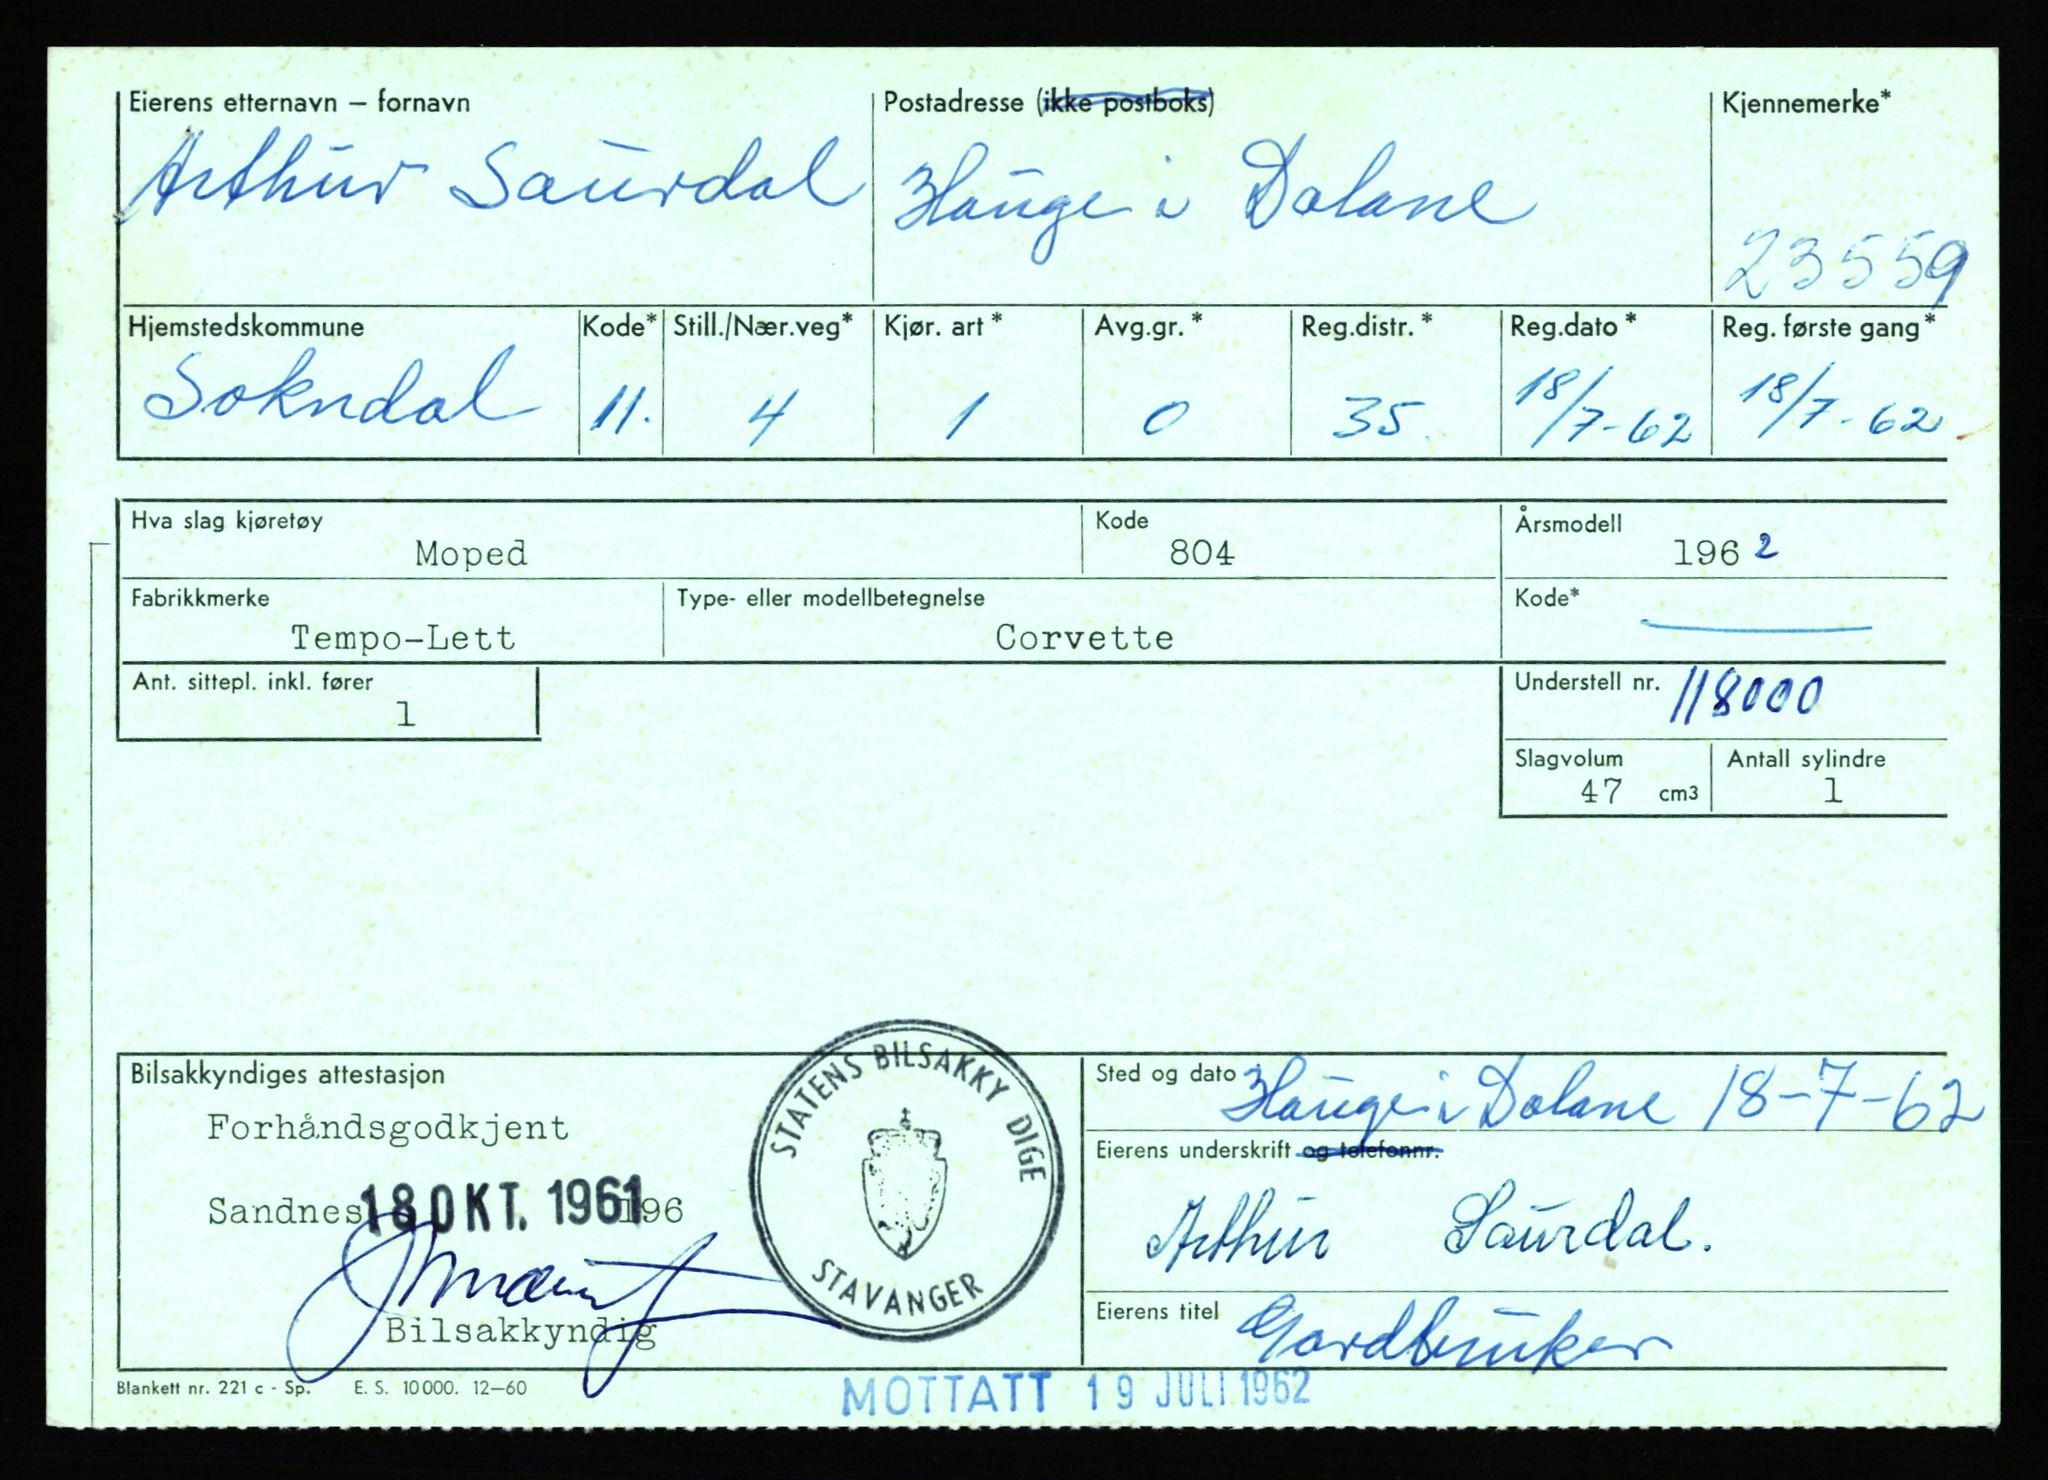 Eierens etternavn – fornavn Postadresse (ikke postboks) Kjennemerke*
Arthur Saurdal Hauge i Dalane
23559
Hjemstedskommune Kode* Still./Nær.veg* Kjør. art* Avg.gr.* Reg.distr.* Reg.dato* Reg. første gang*
Sokndal 11. 4 1 0 35. 18/7-62 18/7-62
Hva slag kjøretøy Kode Årsmodell
Moped 804 1962
Fabrikkmerke Type- eller modellbetegnelse Kode*
Tempo-Lett Corvette
Ant. sittepl. inkl. fører Understell nr. 118000
1
Slagvolum Antall sylindre
47 cm3 1
Bilsakkyndiges attestasjon
Forhåndsgodkjent
Sandnes 18 OKT. 1961 196
Bilsakkyndig
STATENS BILSAKKYDIGE
STAVANGER
Sted og dato Hauge i Dalane 18-7-62
Eierens underskrift og telefonnr.
Arthur Saurdal.
Eierens titel Gardbruker
Blankett nr. 221 c - Sp. E. S. 10000. 12–60
MOTTATT 19 JULI 1962